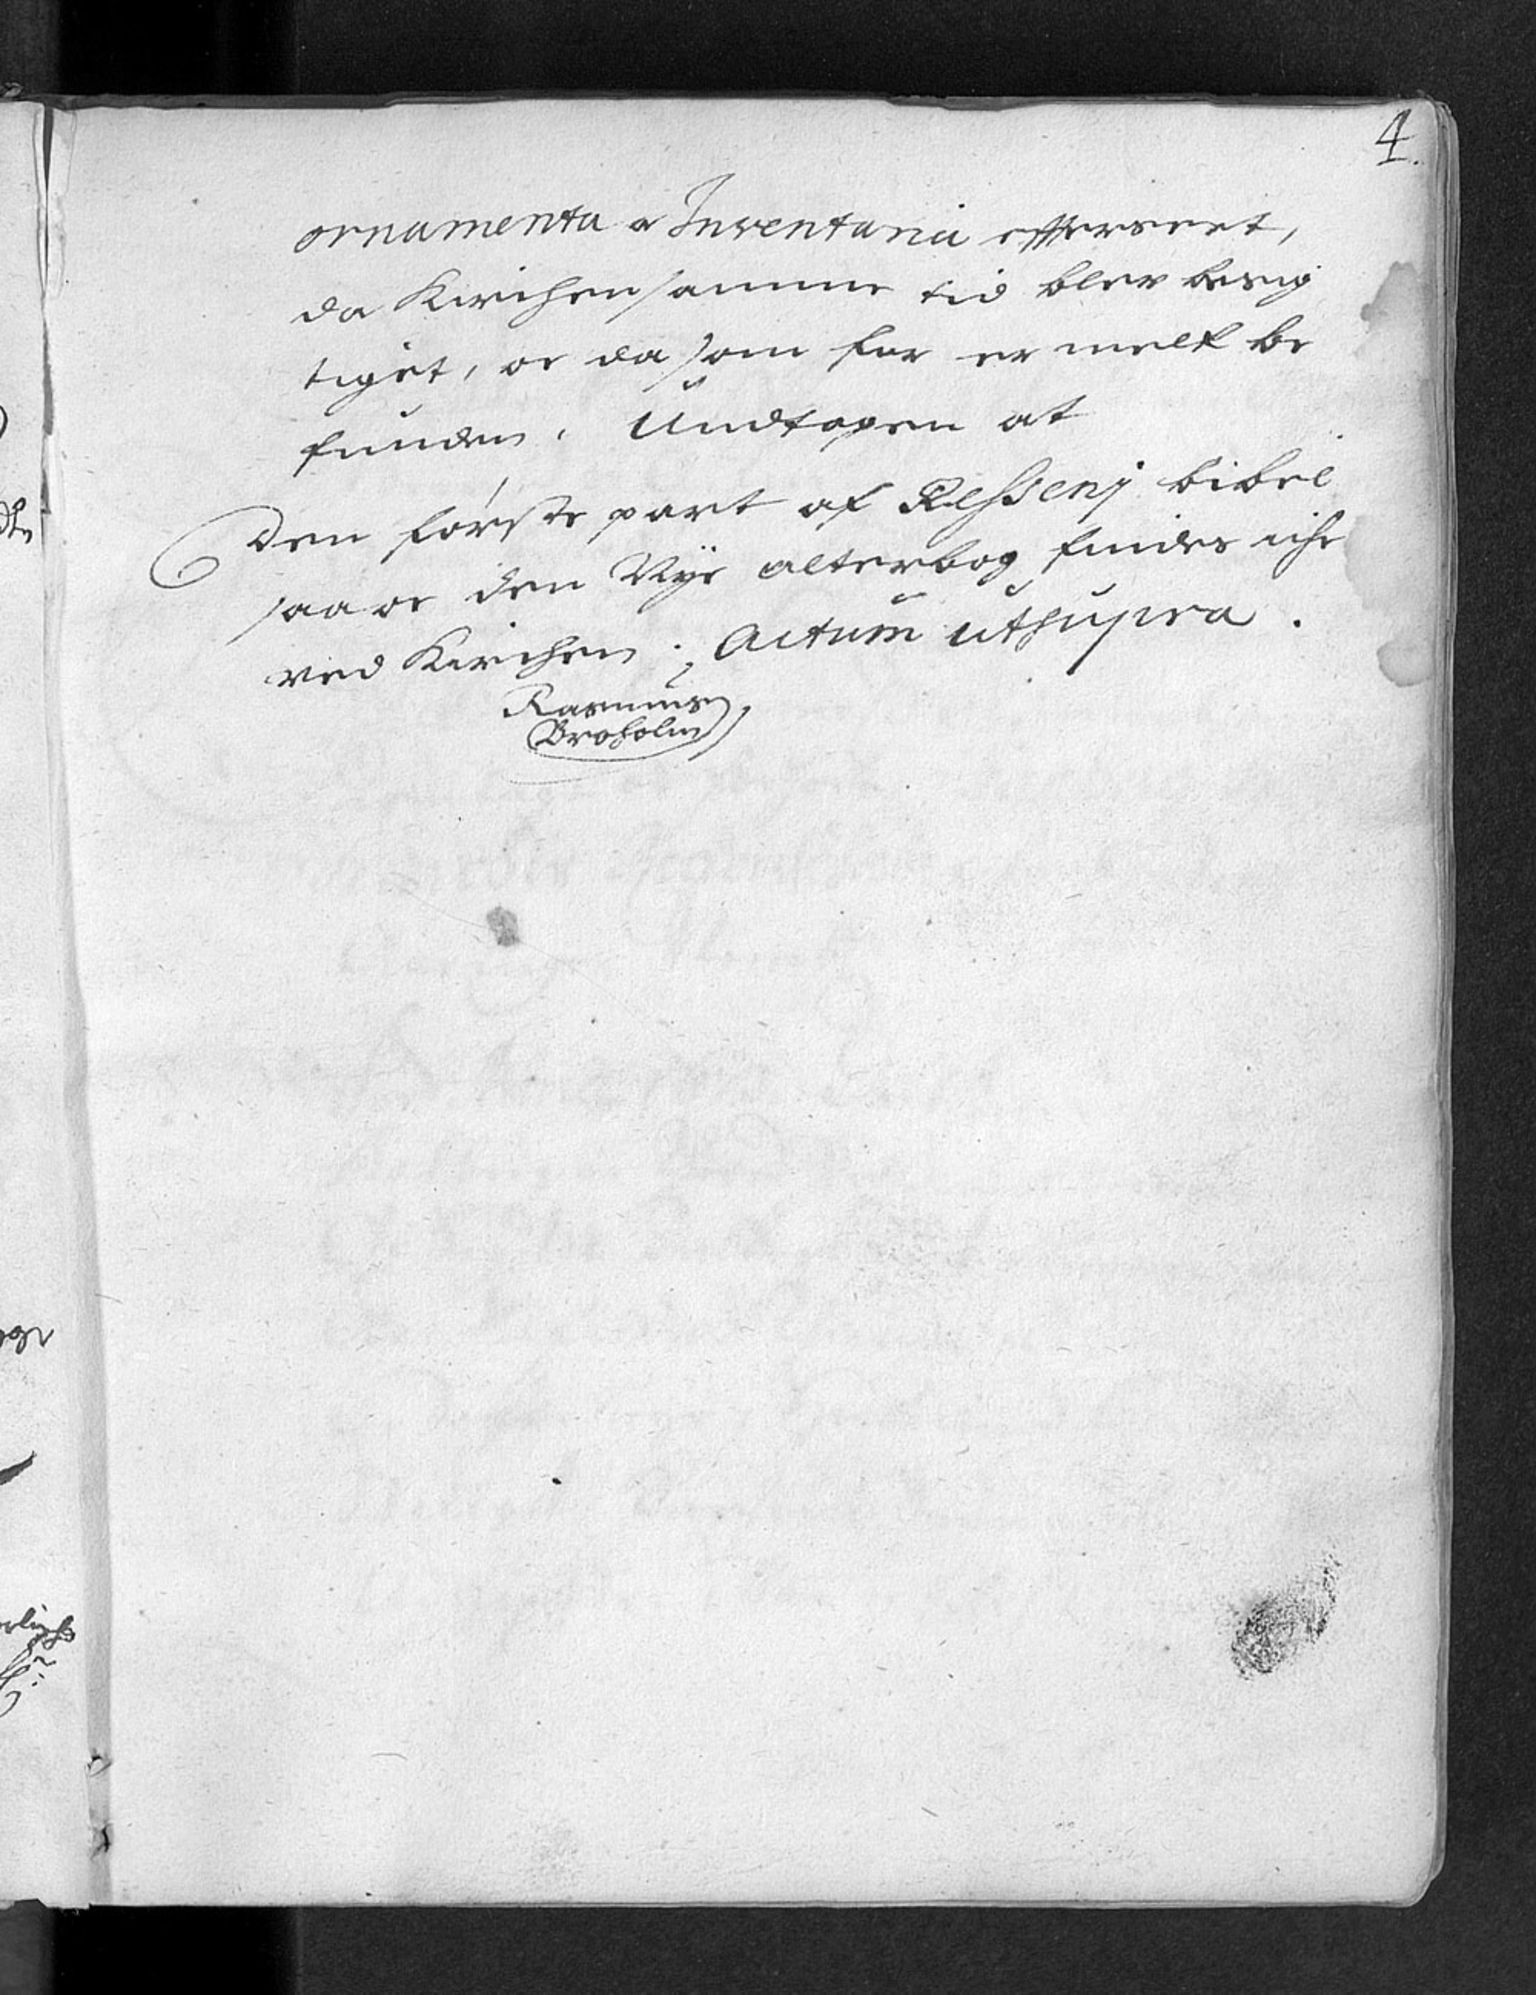 4.
ornamenta oc Inventaria efterseet,
da Kirchen samme tid blev besig
tiget, oc da som før er melt be
funden. Undtagen at
Den første part af Ressenj bibel
saa oc den Nye alterbog findes iche
ved Kirchen. Actum ut supra.
Rasmus
Broholm